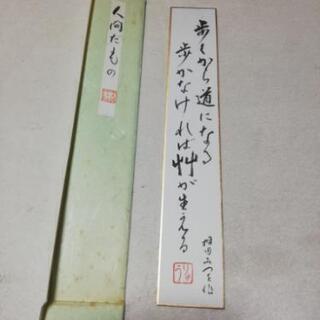 歩くから道になる
歩かなければ艸が生える
相田みつを作
人間だもの